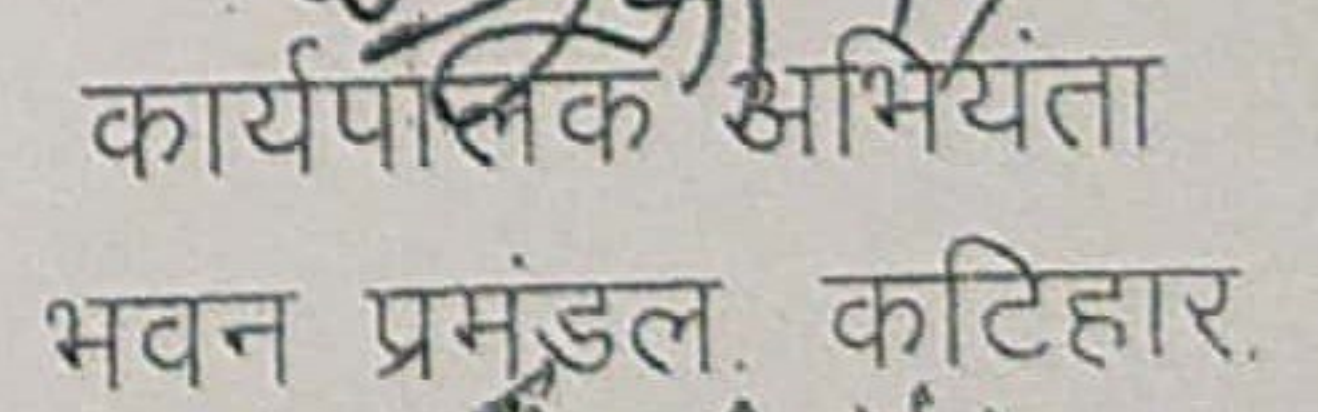 कार्यपालक अभियंता
भवन प्रमंडल. कटिहार.